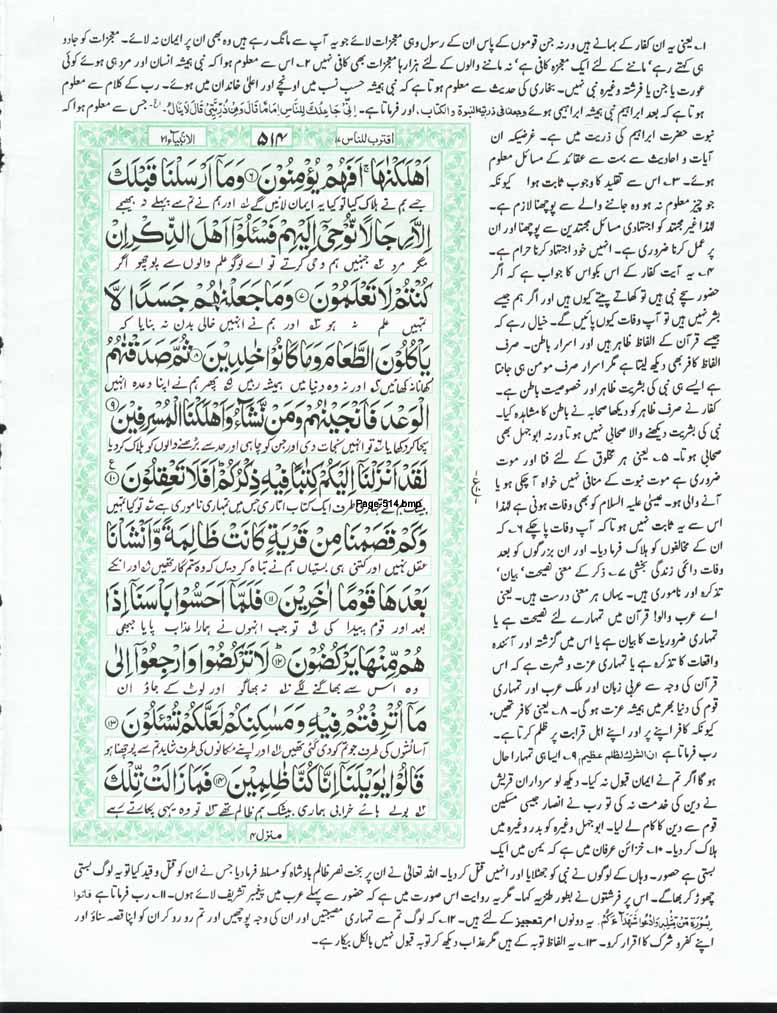 ۱۔ یعنی یہ ان کفار کے بہانے ہیں ورنہ جن قوموں کے پاس ان کے رسول وہی معجزات لائے جو یہ آپ سے مانگ رہے ہیں وہ بھی ان پر ایمان نہ لائے۔ معجزات کو جادو
ہی کہتے رہے' ماننے کے لئے ایک معجزہ کافی ہے' نہ ماننے والوں کے لئے ہزارہا معجزات بھی کافی نہیں ۲۔ اس سے معلوم ہوا کہ نبی ہمیشہ انسان اور مرد ہی ہوئے کوئی
عورت یا جن یا فرشتہ وغیرہ نبی نہیں۔ بخاری کی حدیث سے معلوم ہوتا ہے کہ نبی ہمیشہ حسب نسب میں اونچے اور اعلیٰ خاندان میں ہوئے۔ رب کے کلام سے معلوم
ہوتا ہے کہ بعد ابراہیم نبی ہمیشہ ابراہیمی ہوئے وجعلنا فی ذریتہ النبوۃ والکتاب، اور فرماتا ہے۔ اِنِّیْ جَاعِلُكَ لِلنَّاسِ اِمَامًا قَالَ وَمِنْ ذُرِّیَّتِیْ قَالَ لَا یَنَالُ جس سے معلوم ہوا کہ
نبوت حضرت ابراہیم کی ذریت میں ہے۔ غرضیکہ ان
آیات و احادیث سے بہت سے عقائد کے مسائل معلوم
ہوئے۔ ۳۔ اس سے تقلید کا وجوب ثابت ہوا کیونکہ
جو چیز معلوم نہ ہو وہ جاننے والے سے پوچھنا لازم ہے۔
لہٰذا غیر مجتہد کو اجتہادی مسائل مجتہدین سے پوچھنا اور ان
پر عمل کرنا ضروری ہے۔ انہیں خود اجتہاد کرنا حرام ہے۔
۴۔ یہ آیت کفار کے اس بکواس کا جواب ہے کہ اگر
حضور سچے نبی ہیں تو کھاتے پیتے کیوں ہیں اور اگر ہم جیسے
بشر نہیں ہیں تو آپ وفات کیوں پائیں گے۔ خیال رہے کہ
جیسے قرآن کے الفاظ ظاہر ہیں اور اسرار باطن۔ صرف
الفاظ کافر بھی دیکھ لیتا ہے مگر اسرار صرف مومن ہی جانتا
ہے ایسے ہی نبی کی بشریت ظاہر اور خصوصیت باطن ہے۔
کفار نے صرف ظاہر کو دیکھا صحابہ نے باطن کا مشاہدہ کیا۔
نبی کی بشریت دیکھنے والا صحابی نہیں ہوتا ورنہ ابوجہل بھی
صحابی ہوتا۔ ۵۔ یعنی ہر مخلوق کے لئے فنا اور موت
ضروری ہے موت نبوت کے منافی نہیں خواہ آ چکی ہو یا
آنے والی ہو۔ عیسیٰ علیہ السلام کو بھی وفات ہونی ہے لہٰذا
اس سے یہ ثابت نہیں ہوتا کہ آپ وفات پا چکے ۶۔ کہ
ان کے مخالفوں کو ہلاک فرما دیا۔ اور ان بزرگوں کو بعد
وفات دائمی زندگی بخشی ۷۔ ذکر کے معنی نصیحت' بیان'
تذکرہ اور ناموری ہیں۔ یہاں ہر معنی درست ہیں۔ یعنی
اے عرب والو! قرآن میں تمہارے لئے نصیحت ہے یا
تمہاری ضروریات کا بیان ہے یا اس میں گزشتہ اور آئندہ
واقعات کا تذکرہ ہے یا تمہاری عزت و شہرت ہے کہ اس
قرآن کی وجہ سے عربی زبان اور ملک عرب اور تمہاری
قوم کی دنیا بھر میں ہمیشہ عزت ہو گی۔ ۸۔ یعنی کافر تھیں'
کیونکہ کافر اپنے پر اور اپنے اہل قرابت پر ظلم کرتا ہے۔
رب فرماتا ہے ان الشرك لظلم عظیم، ۹۔ ایسا ہی تمہارا حال
ہو گا اگر تم نے ایمان قبول نہ کیا۔ دیکھ لو سرداران قریش
نے دین کی خدمت نہ کی تو رب نے انصار جیسی مسکین
قوم سے دین کا کام لے لیا۔ ابوجہل وغیرہ کو بدر وغیرہ میں
ہلاک کر دیا۔ ۱۰۔ خزائن عرفان میں ہے کہ یمن میں ایک
اقترب للناس۱۷
۵۱۴
الانبیاء۲۱
اَهْلَكْنٰهَا ۚ اَفَهُمْ یُؤْمِنُوْنَ ۝۶ وَمَاۤ اَرْسَلْنَا قَبْلَكَ
جسے ہم نے ہلاک کیا تو کیا یہ ایمان لائیں گے اور ہم نے تم سے پہلے نہ بھیجے
اِلَّا رِجَالًا نُّوْحِیْۤ اِلَیْهِمْ فَسْـَٔلُوْۤا اَهْلَ الذِّكْرِ اِنْ
مگر مرد جنہیں ہم وحی کرتے تو اے لوگو علم والوں سے پوچھو اگر
كُنْتُمْ لَا تَعْلَمُوْنَ ۝۷ وَمَا جَعَلْنٰهُمْ جَسَدًا لَّا
تمہیں علم نہ ہو اور ہم نے انہیں خالی بدن نہ بنایا کہ
یَاْكُلُوْنَ الطَّعَامَ وَمَا كَانُوْا خٰلِدِیْنَ ۝۸ ثُمَّ صَدَقْنٰهُمُ
کھانا نہ کھائیں اور نہ وہ دنیا میں ہمیشہ رہیں پھر ہم نے اپنا وعدہ انہیں
الْوَعْدَ فَاَنْجَیْنٰهُمْ وَمَنْ نَّشَآءُ وَاَهْلَكْنَا الْمُسْرِفِیْنَ ۝۹
سچا کر دکھایا تو انہیں نجات دی اور جن کو چاہی اور حد سے بڑھنے والوں کو ہلاک کر دیا
لَقَدْ اَنْزَلْنَاۤ اِلَیْكُمْ كِتٰبًا فِیْهِ ذِكْرُكُمْ ؕ اَفَلَا تَعْقِلُوْنَ ۝۱۰
بیشک ہم نے تمہاری طرف ایک کتاب اتاری جس میں تمہاری ناموری ہے تو کیا تمہیں
Page-514.bmp
وَكَمْ قَصَمْنَا مِنْ قَرْیَةٍ كَانَتْ ظَالِمَةً وَّاَنْشَاْنَا
عقل نہیں اور کتنی ہی بستیاں ہم نے تباہ کر دیں کہ وہ ستم گار تھیں اور انکے
بَعْدَهَا قَوْمًا اٰخَرِیْنَ ۝۱۱ فَلَمَّاۤ اَحَسُّوْا بَاْسَنَاۤ اِذَا
بعد اور قوم پیدا کی تو جب انہوں نے ہمارا عذاب پایا جبھی
هُمْ مِّنْهَا یَرْكُضُوْنَ ۝۱۲ لَا تَرْكُضُوْا وَارْجِعُوْۤا اِلٰی
وہ اس سے بھاگنے لگے نہ بھاگو اور لوٹ کے جاؤ ان
مَاۤ اُتْرِفْتُمْ فِیْهِ وَمَسٰكِنِكُمْ لَعَلَّكُمْ تُسْـَٔلُوْنَ ۝۱۳
آسائشوں کی طرف جو تم کو دی گئی تھیں اور اپنے مکانوں کی طرف شاید تم سے پوچھنا ہو
قَالُوْا یٰوَیْلَنَاۤ اِنَّا كُنَّا ظٰلِمِیْنَ ۝۱۴ فَمَا زَالَتْ تِّلْكَ
بولے ہائے خرابی ہماری بیشک ہم ظالم تھے تو وہ یہی پکارتے رہے
منزل۴
بستی ہے حصور۔ وہاں کے لوگوں نے نبی کو جھٹلایا اور انہیں قتل کر دیا۔ اللہ تعالیٰ نے ان پر بخت نصر ظالم بادشاہ کو مسلط فرما دیا جس نے ان کو قتل و قید کیا تو یہ لوگ بستی
چھوڑ کر بھاگے۔ اس پر فرشتوں نے بطور طنز یہ کہا۔ مگر یہ روایت اس صورت میں ہے کہ حضور سے پہلے عرب میں پیغمبر تشریف لائے ہوں۔ ۱۱۔ رب فرماتا ہے فَاْتُوْا
بِسُوْرَةٍ مِّنْ مِّثْلِهٖ وَادْعُوْا شُهَدَآءَكُمْ۔ یہ دونوں امر تعجیز کے لئے ہیں۔ ۱۲۔ کہ لوگ تم سے تمہاری مصیبتیں اور ان کی وجہ پوچھیں اور تم رو رو کر ان کو اپنا قصہ سناؤ اور
اپنے کفر و شرک کا اقرار کرو۔ ۱۳۔ یہ الفاظ توبہ کے ہیں مگر عذاب دیکھ کر توبہ قبول نہیں بالکل بیکار ہے۔